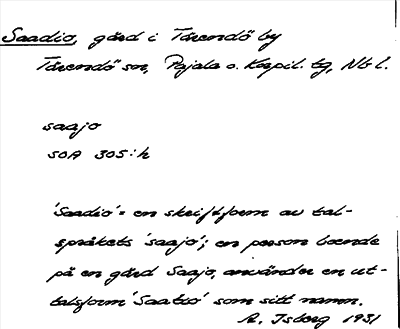 Saadio, gård i Tärendö by
Tärendö sn, Pajala o. Korpil. tg, Nb l.
saajo
SOA 305:h
'Saadio' = en skriftform av tal-
språkets 'saajo'; en person boende
på en gård Saajo, använder en ut-
talsform 'Saatio' som sitt namn.
R. Isberg 1931